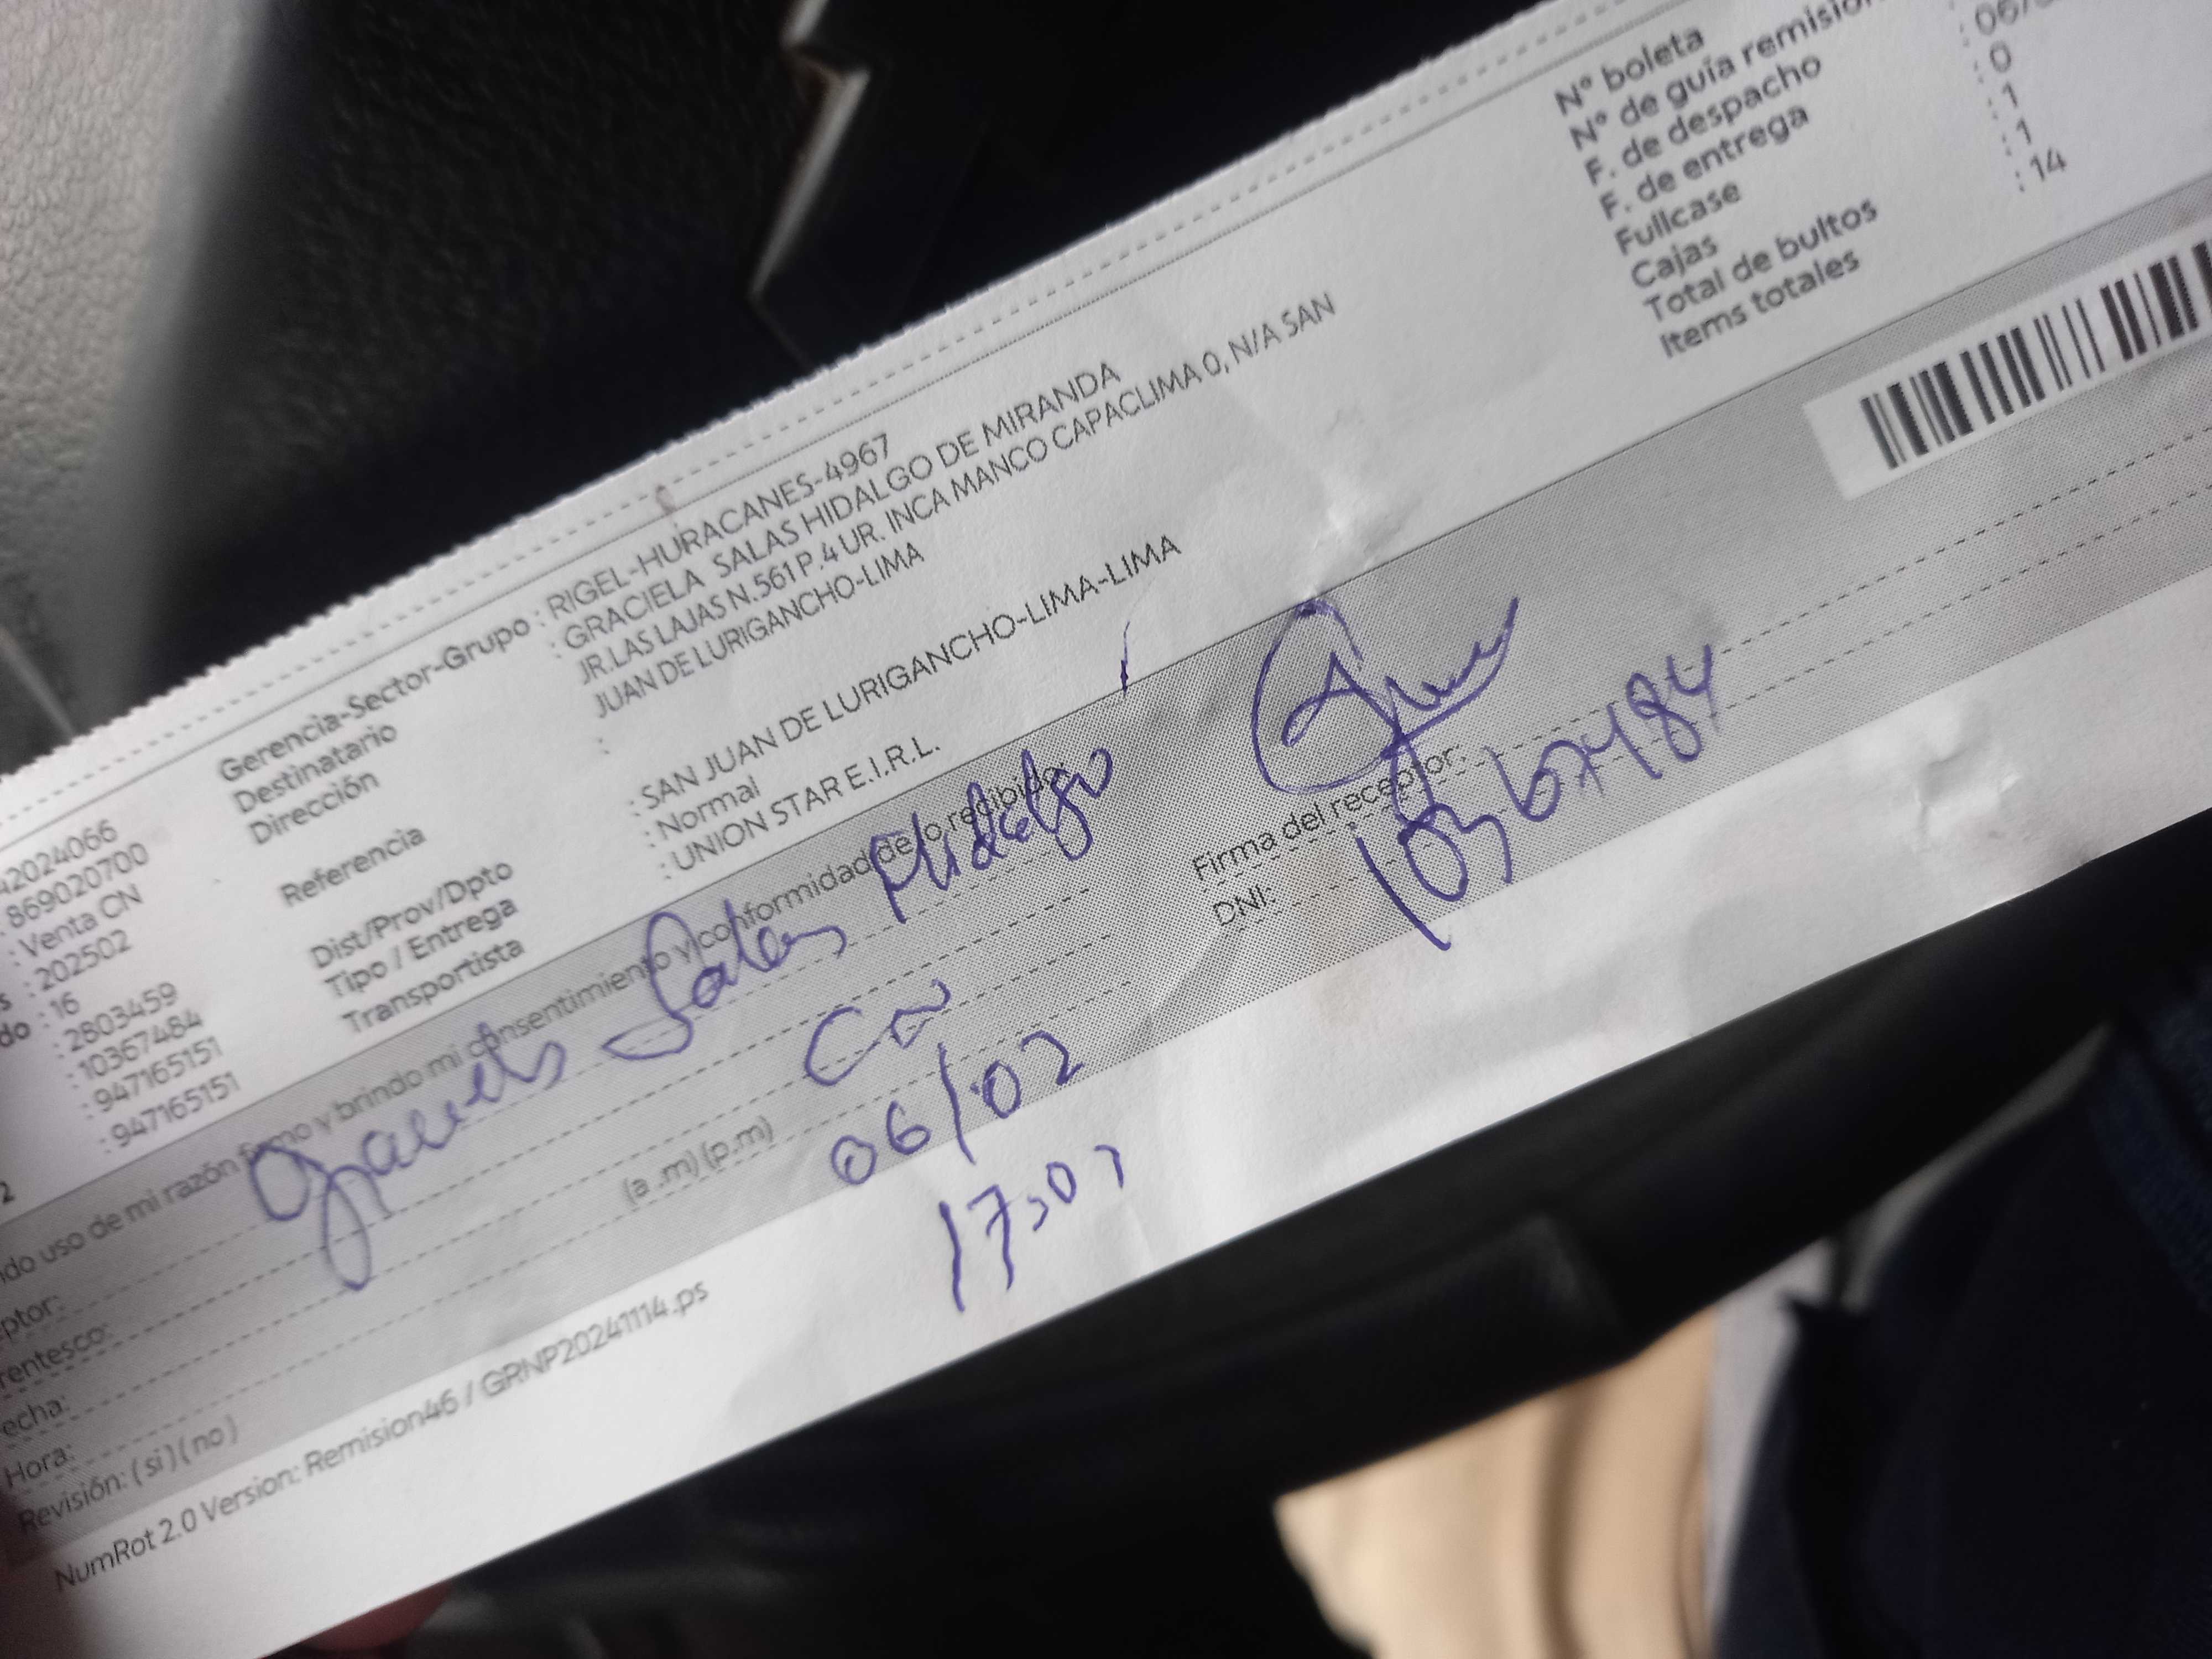 42024066
: 869020700
: Venta CN
: 202502
do : 16
: 2803459
: 10367484
: 947165151
: 947165151
2
Gerencia-Sector-Grupo : RIGEL-HURACANES-4967
Destinatario : GRACIELA SALAS HIDALGO DE MIRANDA
Dirección JR.LAS LAJAS N.561 P.4 UR. INCA MANCO CAPACLIMA 0, N/A SAN
JUAN DE LURIGANCHO-LIMA
Referencia :
Dist/Prov/Dpto : SAN JUAN DE LURIGANCHO-LIMA-LIMA
Tipo / Entrega : Normal
Transportista : UNION STAR E.I.R.L.
N° boleta
N° de guía remisión
F. de despacho
F. de entrega : 06/
Fullcase : 0
Cajas : 1
Total de bultos : 1
Items totales : 14
ndo uso de mi razón firmo y brindo mi consentimiento y conformidad de lo recibido:
ptor: Salas Hidalgo
rentesco: CN
echa: 06/02
Hora: (a .m) (p.m) 17:07
Revisión: ( si ) ( no )
Firma del receptor:
DNI: 10367484
NumRot 2.0 Version: Remision46 / GRNP20241114.ps